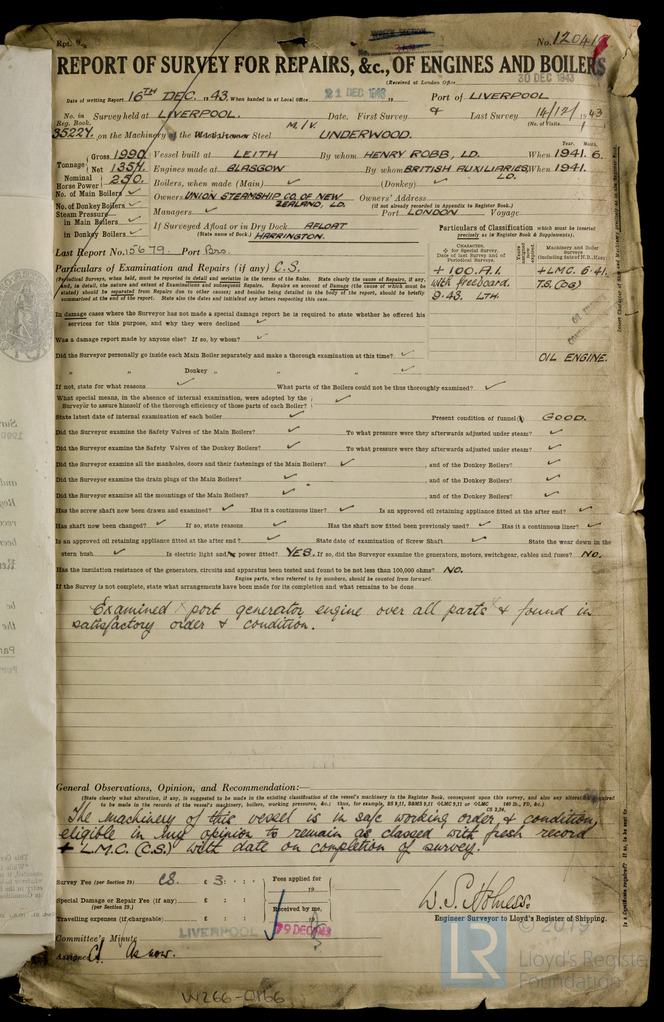 Rpt. 9.
No. 12041
REPORT OF SURVEY FOR REPAIRS, &c., OF ENGINES AND BOILERS
(Received at London Office 30 DEC 1943
Date of writing Report 16TH DEC. 1943. When handed in at Local Office 21 DEC 1943 19 Port of LIVERPOOL
No. in Reg. Book. Survey held at LIVERPOOL. Date, First Survey & Last Survey 14/12/1943
(No. of Visits 1
35227. on the Machinery of the Steel M.I.V. UNDERWOOD.
Tonnage Gross 1990 Net 1354 Vessel built at LEITH By whom HENRY ROBB, LD. When 1941. 6.
Year. Month.
Nominal Horse Power 250. Engines made at GLASGOW By whom BRITISH AUXILIARIES, LD. When 1941.
No. of Main Boilers Boilers, when made (Main) (Donkey)
No. of Donkey Boilers Owners UNION STEAMSHIP CO. OF NEW ZEALAND, LD. Owners' Address
(if not already recorded in Appendix to Register Book.)
Steam Pressure in Main Boilers Managers Port LONDON Voyage
in Donkey Boilers If Surveyed Afloat or in Dry Dock AFLOAT
(State name of Dock.) HARRINGTON.
Particulars of Classification which must be inserted precisely as in Register Book & Supplements).
CHARACTER, for Special Survey, Date of last Survey and of Periodical Surveys.
Machinery and Boiler Surveys (including dates of N.B., &c.)
+ 100.A.1. with freeboard. 9.43. LTH.
+ LMC. 6.41. T.S.(OG)
OIL ENGINE.
Last Report No. 15679. Port Bro.
Particulars of Examination and Repairs (if any) C.S.
In damage cases where the Surveyor has not made a special damage report he is required to state whether he offered his
services for this purpose, and why they were declined
Was a damage report made by anyone else? If so, by whom?
Did the Surveyor personally go inside each Main Boiler separately and make a thorough examination at this time?
" " Donkey " "
If not, state for what reasons What parts of the Boilers could not be thoroughly examined?
What special means, in the absence of internal examination, were adopted by the
Surveyor to assure himself of the thorough efficiency of those parts of each Boiler?
State latest date of internal examination of each boiler Present condition of funnel GOOD.
Did the Surveyor examine the Safety Valves of the Main Boilers? To what pressure were they afterwards adjusted under steam?
Did the Surveyor examine the Safety Valves of the Donkey Boilers? To what pressure were they afterwards adjusted under steam?
Did the Surveyor examine all the manholes, doors and their fastenings of the Main Boilers? , and of the Donkey Boilers?
Did the Surveyor examine the drain plugs of the Main Boilers? , and of the Donkey Boilers?
Did the Surveyor examine all the mountings of the Main Boilers? , and of the Donkey Boilers?
Has the screw shaft now been drawn and examined? Has it a continuous liner? Is an approved oil retaining appliance fitted at the after end?
Has shaft now been changed? If so, state reasons Has the shaft now fitted been previously used? Has it a continuous liner?
Is an approved oil appliance fitted at the after end? State date of examination of Screw Shaft State the wear down in the
stern bush Is electric light and/or power fitted? YES. If so, did the Surveyor examine the generators, motors, switchgear, cables and fuses? NO.
Has the insulation resistance of the generators, circuits and apparatus been tested and found to be not less than 100,000 ohms? NO.
Engine parts, when referred to by numbers, should be counted from forward.
If the Survey is not complete, state what arrangements have been made for its completion and what remains to be done
Examined port generator engine over all parts & found in
satisfactory order & condition.
General Observations, Opinion, and Recommendation:—
(State clearly what alteration, if any, is suggested to be made in the existing classification of the vessel's machinery in the Register Book, consequent upon this survey, and also any alteration required
to be made in the records of the vessel's machinery, boilers, working pressures, &c.;
The machinery of this vessel is in safe working order & condition,
eligible in my opinion to remain as classed with fresh record
+ L.M.C. (C.S.) with date on completion of survey.
Survey Fee (per Section 29) CS. £ 3 : : Fees applied for
19
Special Damage or Repair Fee (if any) £ : :
(per Section 29.)
Received by me,
Travelling expenses (if chargeable) £ : : 19
Engineer Surveyor to Lloyd's Register of Shipping.
Committee's Minute LIVERPOOL 29 DEC 1943
Assigned As now.
© 2019
LR Lloyd's Register Foundation
W266-0166